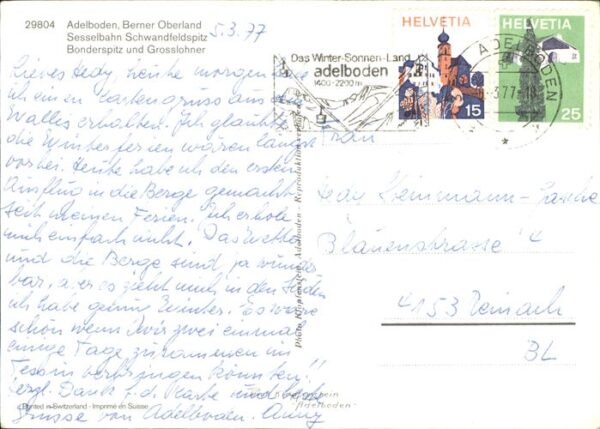 29804 Adelboden, Berner Oberland
Sesselbahn Schwandfeldspitz
Bonderspitz und Grosslohner
5.3.77
Liebes Hedy, heute morgen habe
ich ein en Kartengruss aus dem
Wallis erhalten. Ich glaubte
die Winterferien wären längst
vorbei. Heute habe ich den ersten
Ausflug in die Berge gemacht
seit meinen Ferien. Ich erhole
mich einfach nicht. Das Wetter
und die Berge sind ja wunder
bar, aber es zieht mich in den Süden
ich habe genug Winter. Es wäre
schön wenn wir zwei einmal
einige Tage zusammen im
Tessin verbringen könnten!!
Herzl. Dank f. d. Karte und liebe
Grüsse von Adelboden. Anny
Printed in Switzerland - Imprimé en Suisse
Photo Klopfenstein, Adelboden - Reproduktion
Adelboden
Das Winter-Sonnen-Land
adelboden
1400-2200 m
HELVETIA
15
HELVETIA
25
ADELBODEN
-3.77-18
Frau
Hedy Steinmann-
Blauenstrasse 4
4153 Reinach
BL